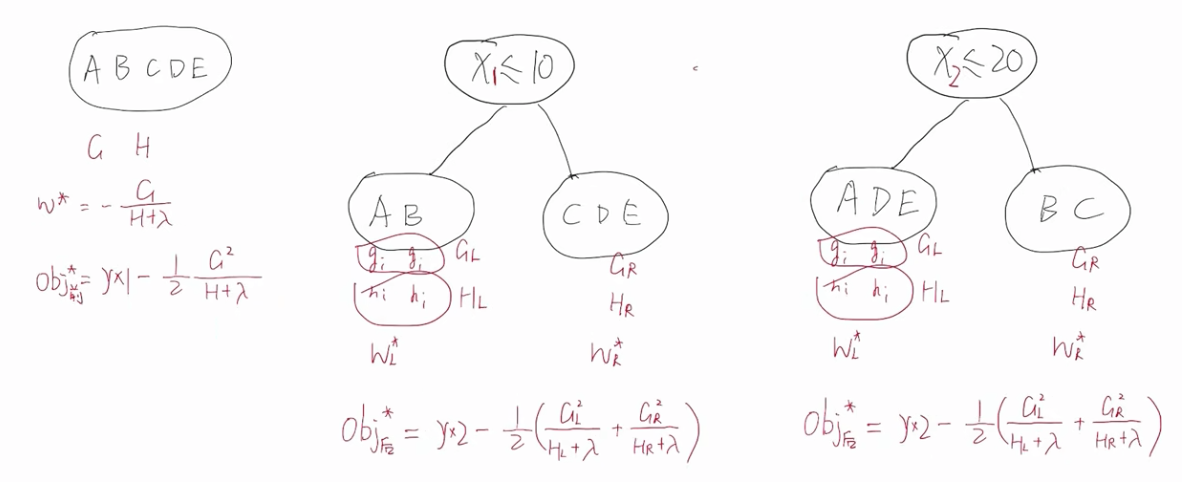 A B C D E
G H
w* = - G / (H+λ)
Obj* = γ×1 - 1/2 G² / (H+λ)
X₁ ≤ 10
A B
C D E
gᵢ gᵢ G_L
hᵢ hᵢ H_L
G_R
H_R
W_L*
W_R*
Obj* = γ×2 - 1/2 (G_L² / (H_L+λ) + G_R² / (H_R+λ))
X₂ ≤ 20
A D E
B C
gᵢ gᵢ G_L
hᵢ hᵢ H_L
G_R
H_R
W_L*
W_R*
Obj* = γ×2 - 1/2 (G_L² / (H_L+λ) + G_R² / (H_R+λ))